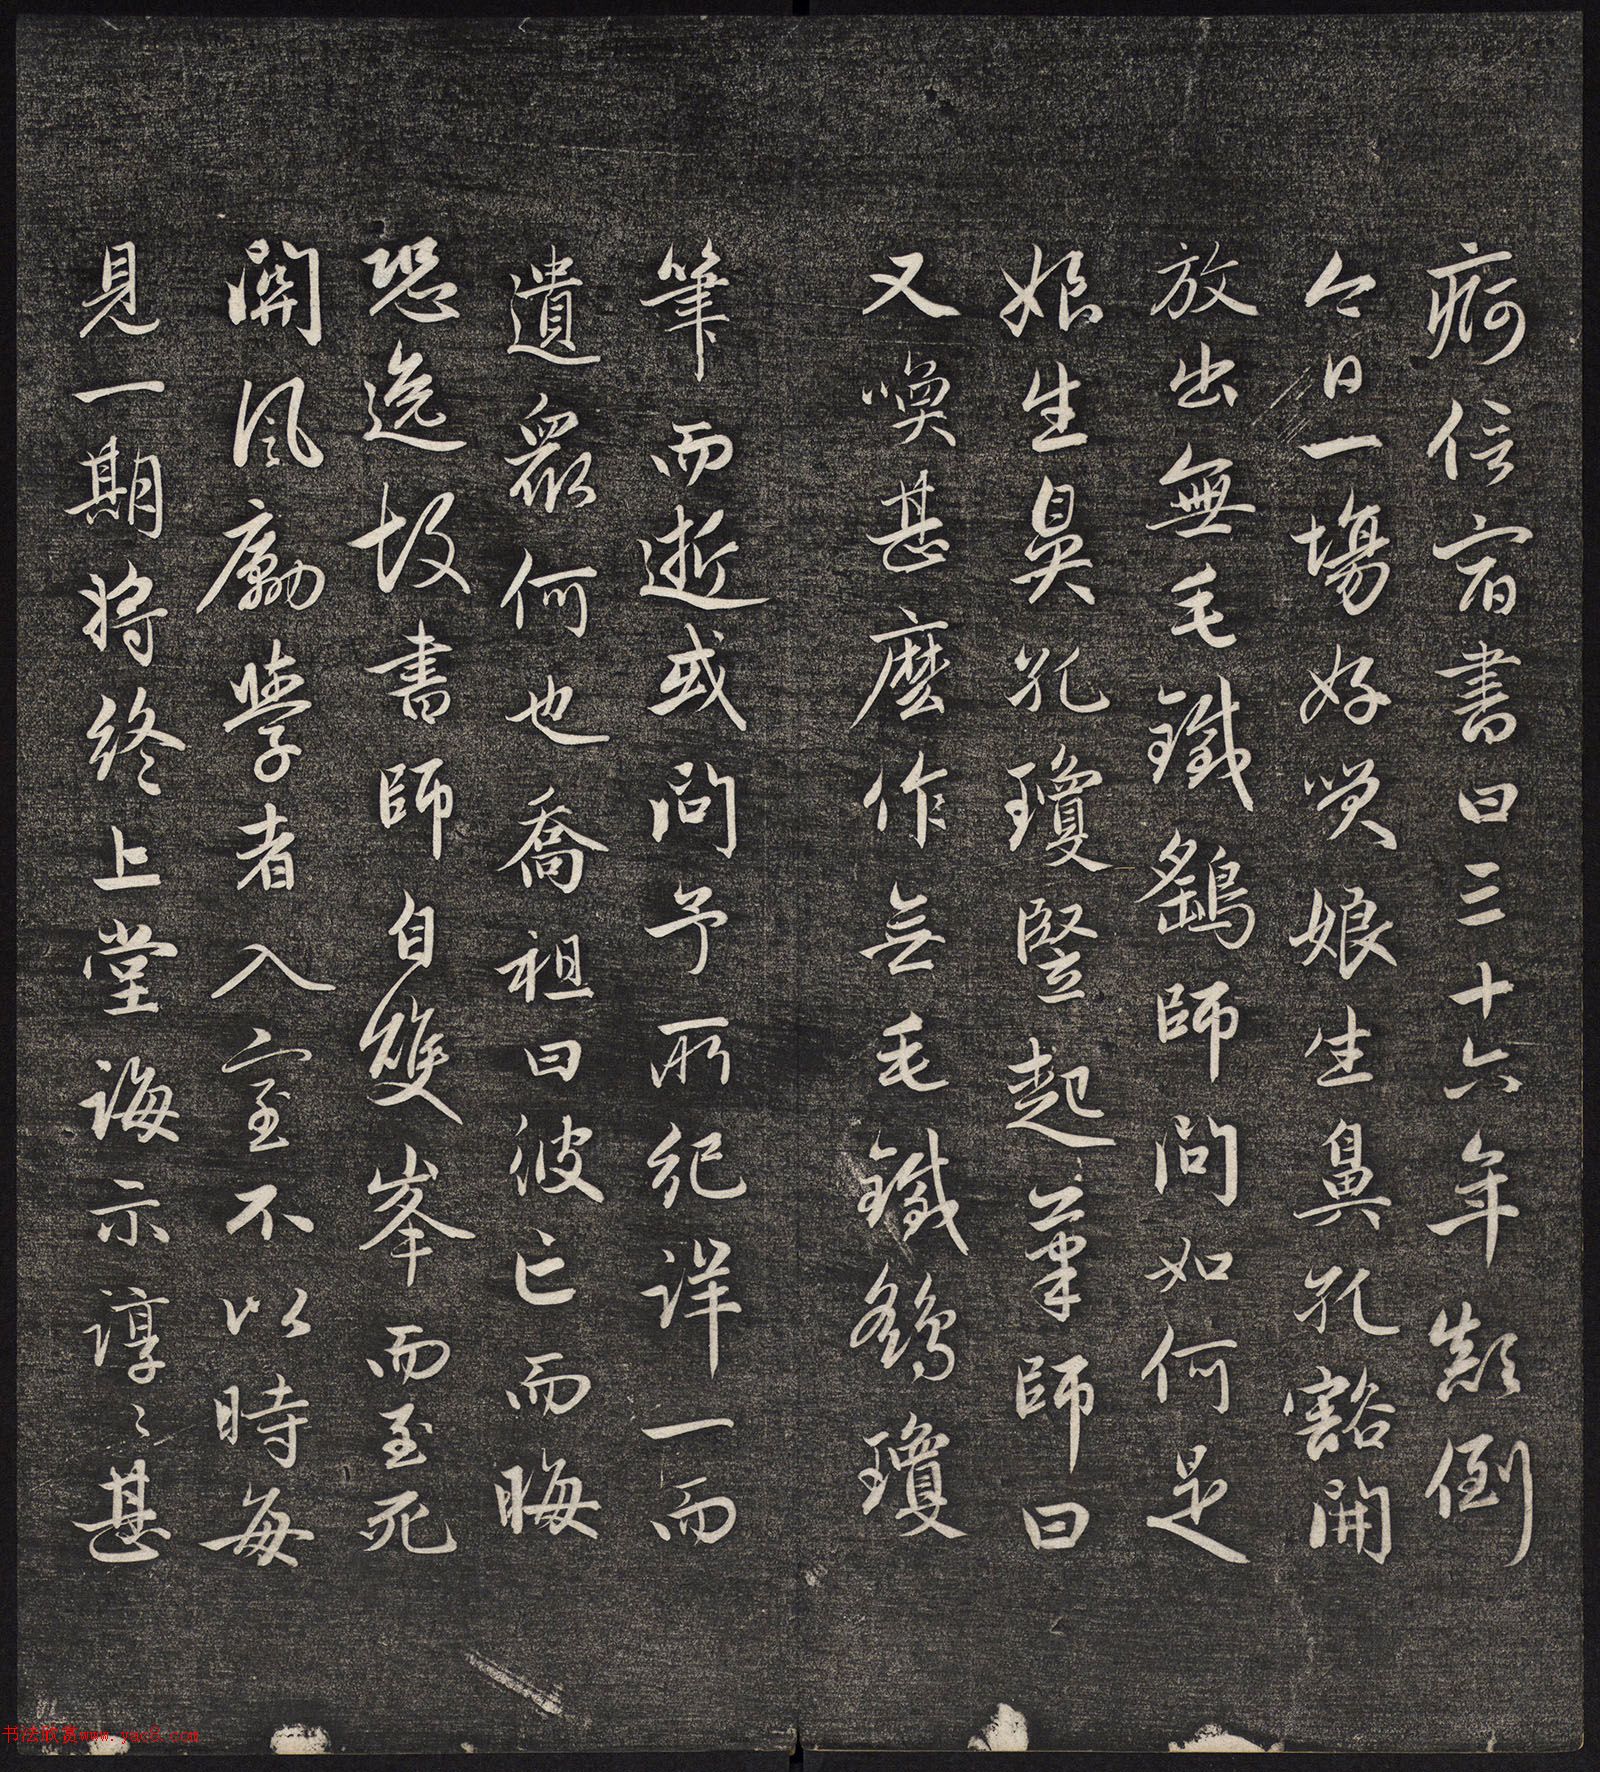 疴信宿書曰三十六年顛倒
今日一場好笑娘生鼻孔豁開
放出無毛鐵鷂師問如何是
娘生鼻孔瓊豎起筆師曰
又喚甚麼作無毛鐵鷂瓊
筆而逝或問予所紀詳一而
遺衆何也喬祖曰彼亡而晦
恐逸故書師自雙峯而至死
關風勵學者入室不以時每
見一期將終上堂誨示諄〻甚
书法欣赏www.yac8.com